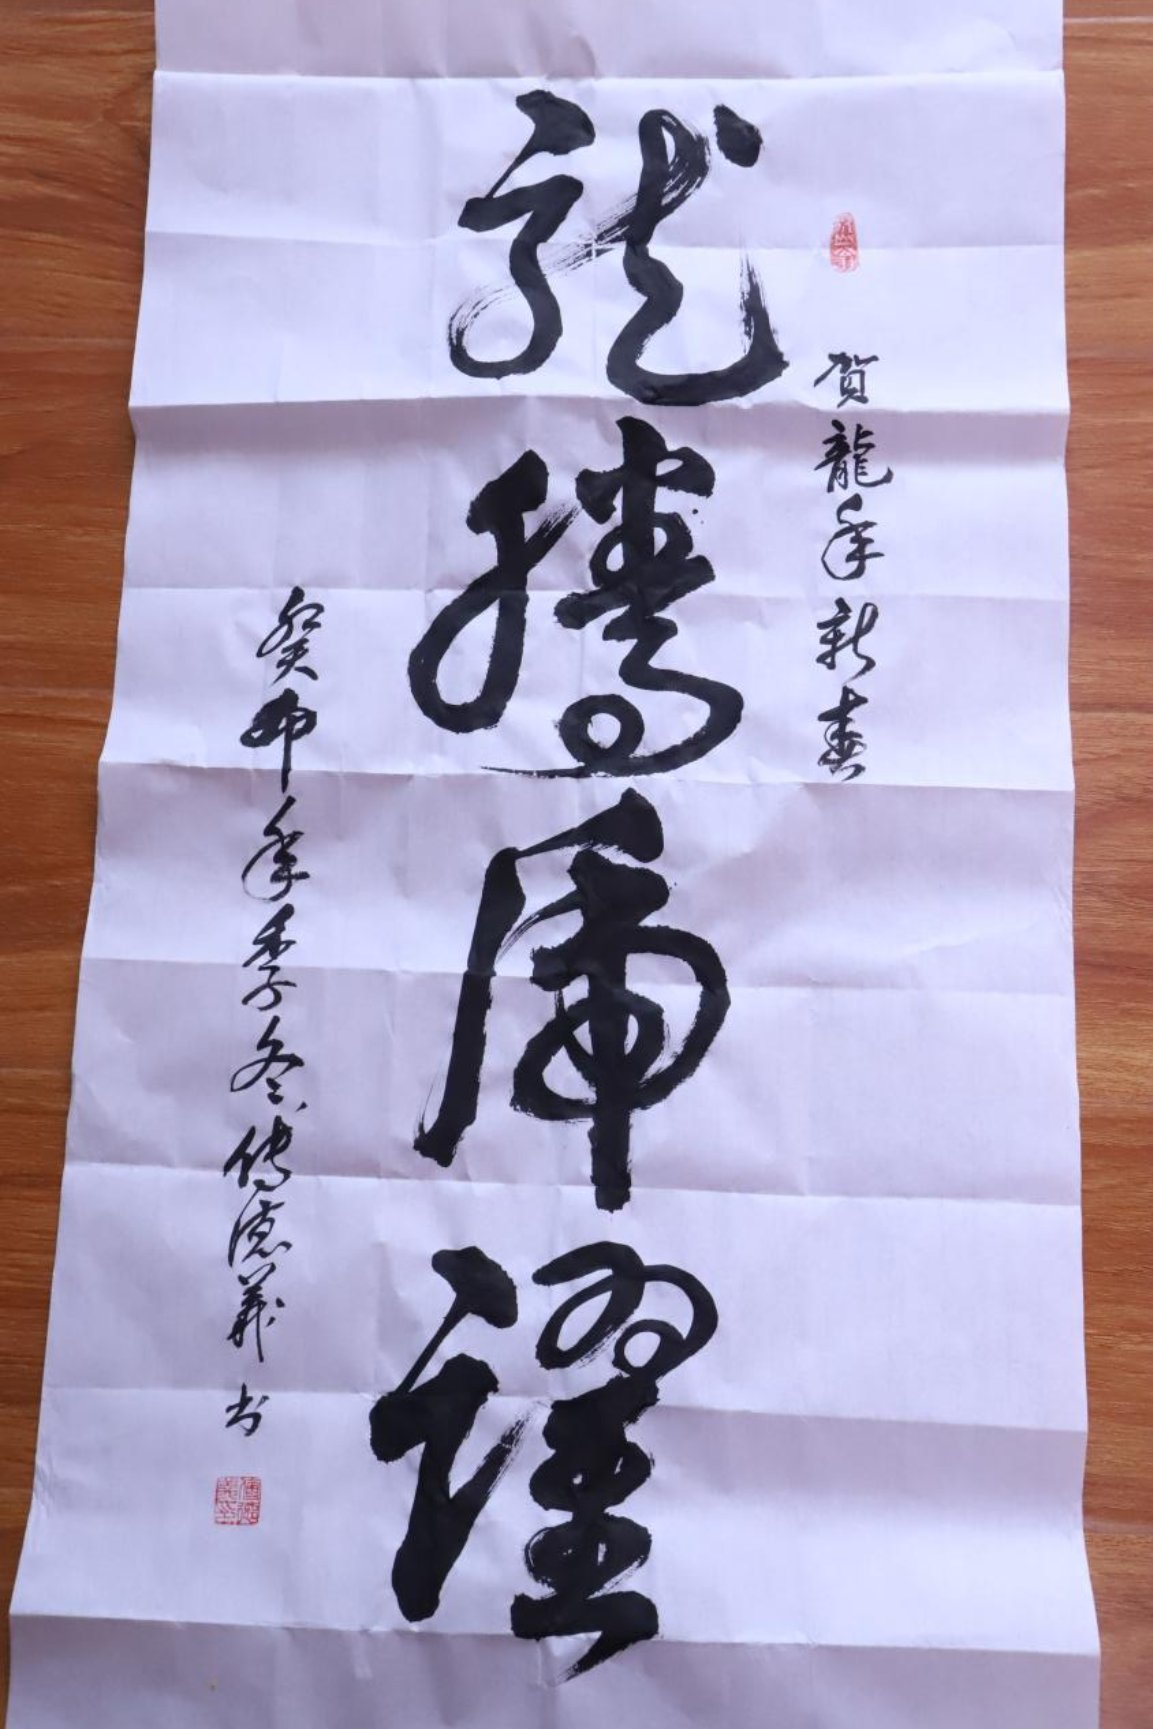 贺龍年新春
龍騰虎躍
癸卯年季冬傅德义书